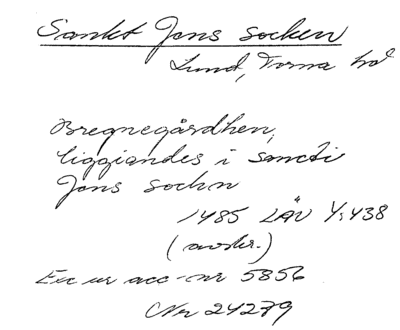 Sankt Jons socken
Lund, Torna hd
Bregnegårdhen,
liggiandes i Sancti
Jons sochn
1485 LÄU 4:438
(avskr.)
Exc ur acc-nr 5856
CNr 24279